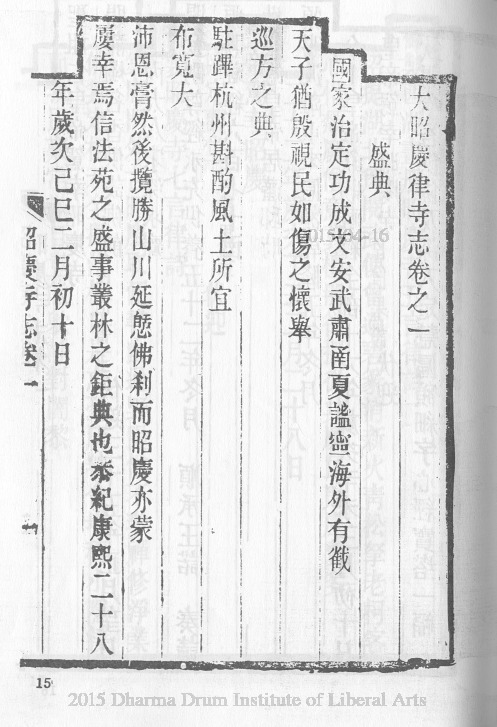 大昭慶律寺志卷之一
盛典
國家治定功成文安武肅函夏謐寧海外有截
天子猶殷視民如傷之懷舉
巡方之典
駐蹕杭州斟酌風土所宜
布寬大
沛恩膏然後攬勝山川延憩佛刹而昭慶亦蒙
屢幸焉信法苑之盛事叢林之鉅典也恭紀康熙二十八
年歲次己巳二月初十日
昭慶寺志卷一
一
15
2015-04-16
2015 Dharma Drum Institute of Liberal Arts